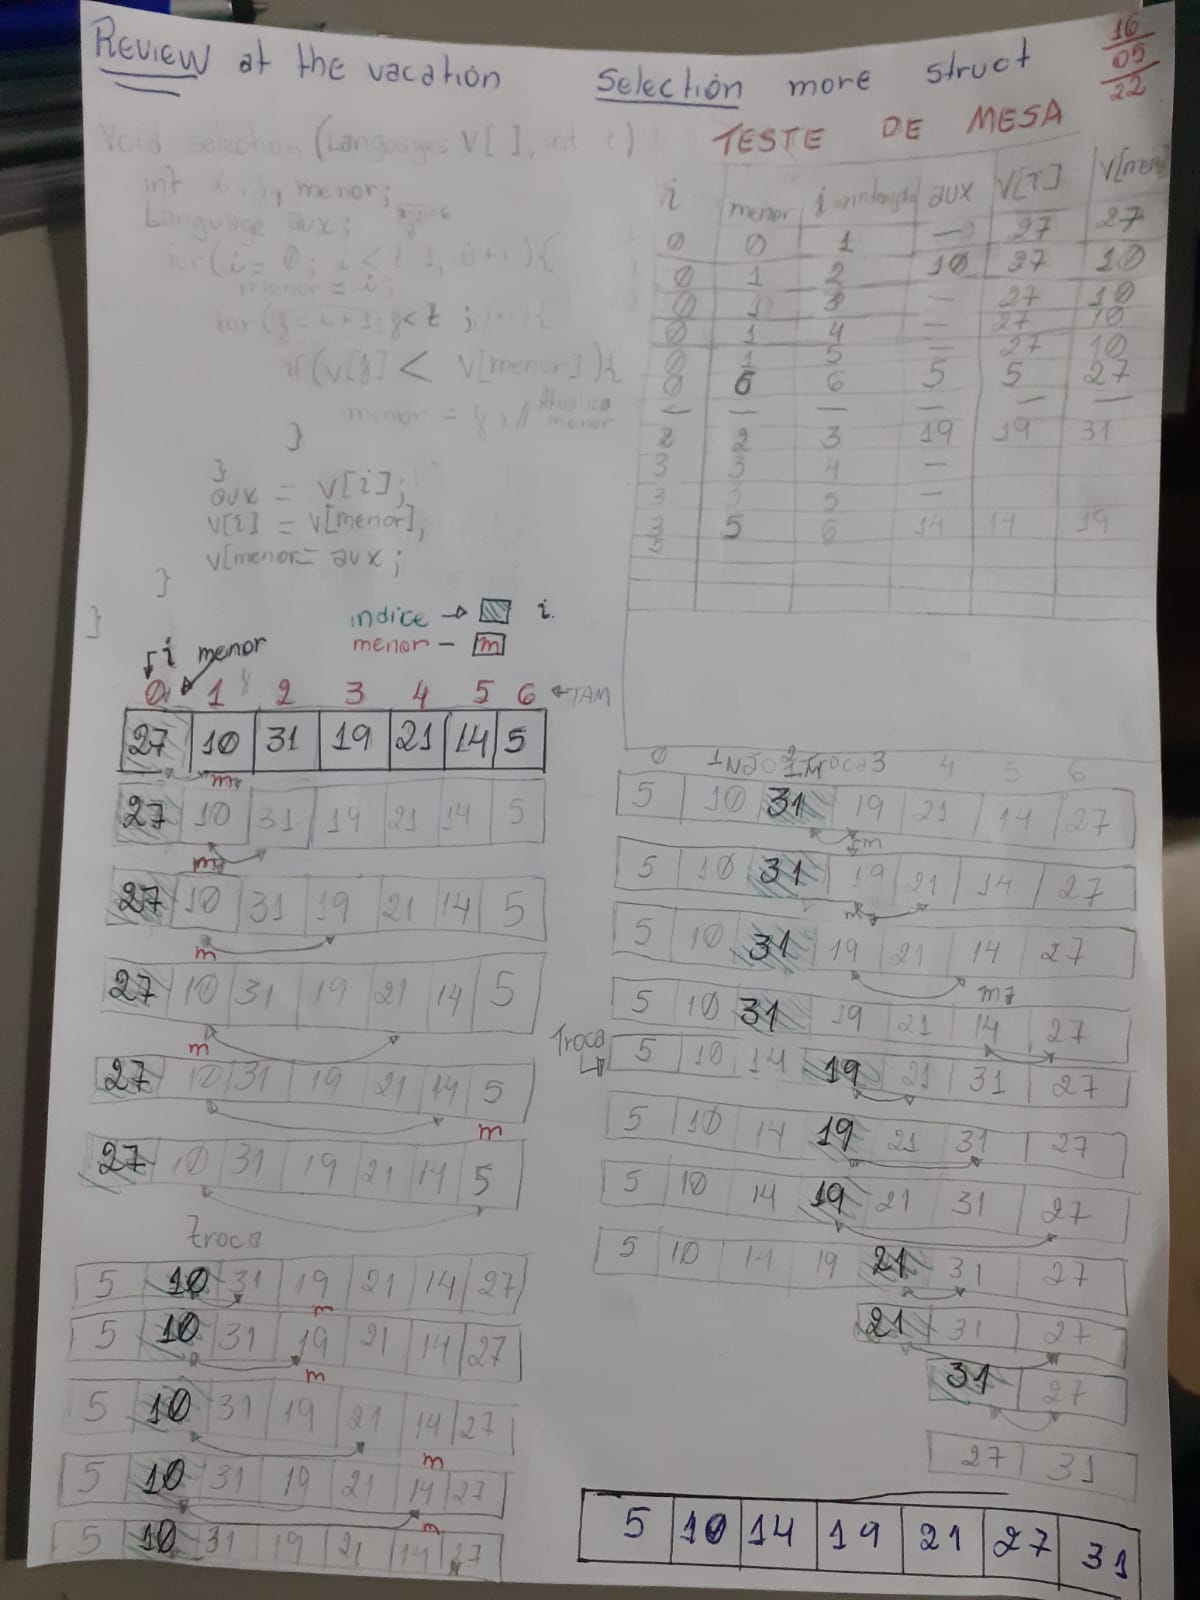 REVIEW at the vacation Selection more struct
16
05
22
Void selection (Languages V[ ], int t)
int i, j, menor;
Language aux;
for(i = 0; i < t-1, i++){
menor = i;
for(j = i+1; j < t ; j++){
if (V[j] < V[menor]){
menor = j; // Atualiza
menor
}
}
aux = V[i];
V[i] = V[menor],
V[menor= aux;
}
}
TESTE DE MESA
i menor j aux V[i] V[menor
0 0 1 — 27 27
0 1 2 10 27 10
0 1 3 — 27 10
0 1 4 — 27 10
0 1 5 — 27 10
0 6 6 5 5 27
— — — — — —
2 2 3 19 19 31
3 3 4 —
3 3 5 —
3 5 6 14 14 19
3
indice → i.
menor – m
i menor
0 1 j 2 3 4 5 6 ← TAM
27 10 31 19 21 14 5
m
27 10 31 19 21 14 5
m
27 10 31 19 21 14 5
m
27 10 31 19 21 14 5
m
27 10 31 19 21 14 5
m
27 10 31 19 21 14 5
troca
5 10 31 19 21 14 27
m
5 10 31 19 21 14 27
m
5 10 31 19 21 14 27
m
5 10 31 19 21 14 27
m
5 10 31 19 21 14 27
0 1 Não 2 Troca 3 4 5 6
5 10 31 19 21 14 27
m
5 10 31 19 21 14 27
m
5 10 31 19 21 14 27
m
5 10 31 19 21 14 27
Troca
5 10 14 19 21 31 27
5 10 14 19 21 31 27
5 10 14 19 21 31 27
5 10 14 19 21 31 27
21 31 27
31 27
27 31
5 10 14 19 21 27 31